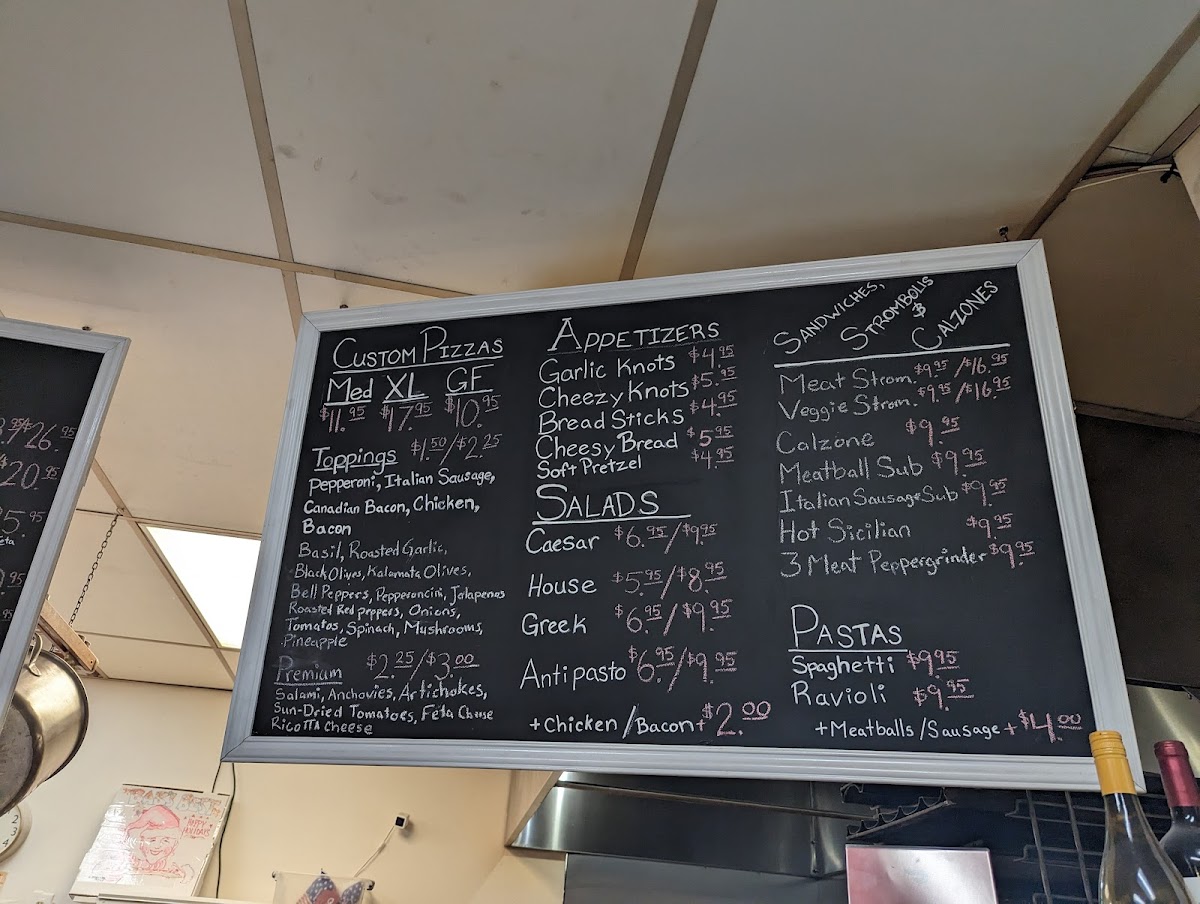 /26.95
$20.95
5.95
95
95
CUSTOM PIZZAS
Med XL GF
$11.95 $17.95 $10.95
Toppings $1.50/$2.25
Pepperoni, Italian Sausage,
Canadian Bacon, Chicken,
Bacon
Basil, Roasted Garlic,
Black Olives, Kalamata Olives,
Bell Peppers, Pepperoncin, Jalapenos
Roasted Red peppers, Onions,
Tomatos, Spinach, Mushrooms,
Pineapple
Premium $2.25/$3.00
Salami, Anchovies, Artichokes,
Sun-Dried Tomatoes, Feta Cheese
Ricotta Cheese
APPETIZERS
Garlic Knots $4.95
Cheezy Knots $5.95
Bread Sticks $4.95
Cheesy Bread $5.95
Soft Pretzel $4.95
SALADS
Caesar $6.95/$9.95
House $5.95/$8.95
Greek $6.95/$9.95
Antipasto $6.95/$9.95
+Chicken/Bacon+$2.00
SANDWICHES,
STROMBOLIS
&
CALZONES
Meat Strom. $9.95/$16.95
Veggie Strom. $9.95/$16.95
Calzone $9.95
Meatball Sub $9.95
Italian Sausage Sub $9.95
Hot Sicilian $9.95
3 Meat Peppergrinder $9.95
PASTAS
Spaghetti $9.95
Ravioli $9.95
+Meatballs/Sausage+$4.00
HAPPY
HOLIDAYS